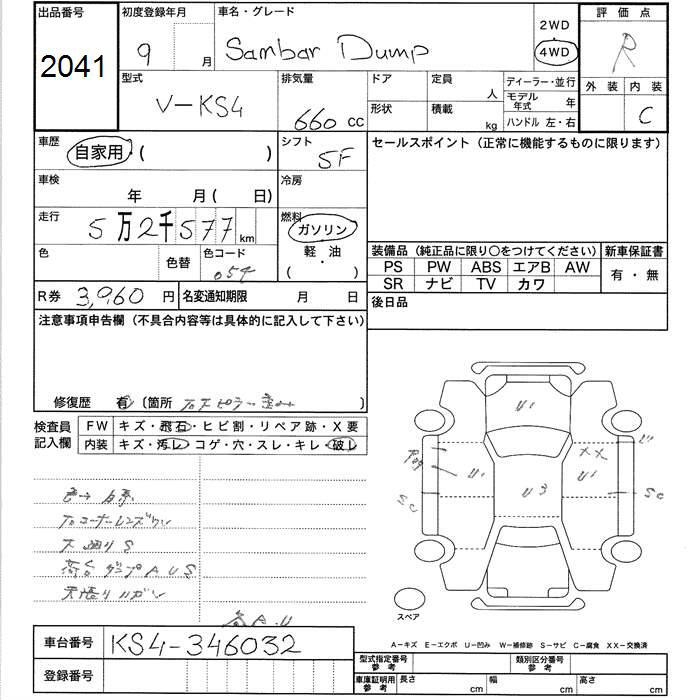 出品番号 初度登録年月 車名・グレード 2WD 評価点
2041 9 月 Sambar Dump 4WD R
型式 排気量 ドア 定員 人 ディーラー・並行 外装 内装
V-KS4 660 cc 形状 積載 kg モデル年式 年 C
ハンドル 左・右
車歴 自家用・( ) シフト 5F セールスポイント(正常に機能するものに限ります)
車検 年 月( 日) 冷房
走行 5万2千577km 燃料 ガソリン
軽・油
( )
色 色替 色コード 054
装備品(純正品に限り○をつけてください) 新車保証書
PS PW ABS エアB AW 有・無
SR ナビ TV カワ
R券 3,960 円 名変通知期限 月 日 後日品
注意事項申告欄(不具合内容等は具体的に記入して下さい)
修復歴 有 〔箇所
検査員記入欄 FW キズ・飛石・ヒビ割・リペア跡・X要
内装 キズ・汚レ・コゲ・穴・スレ・キレ・破レ
U1
XX
U1 U3 U1
SC SC
スペア
A-キズ E-エクボ U-凹み W-補修跡 S-サビ C-腐食 XX-交換済
車台番号 KS4-346032
登録番号
型式指定番号参考 類別区分番号参考
車庫証明用参考 長さ cm 幅 cm 高さ cm